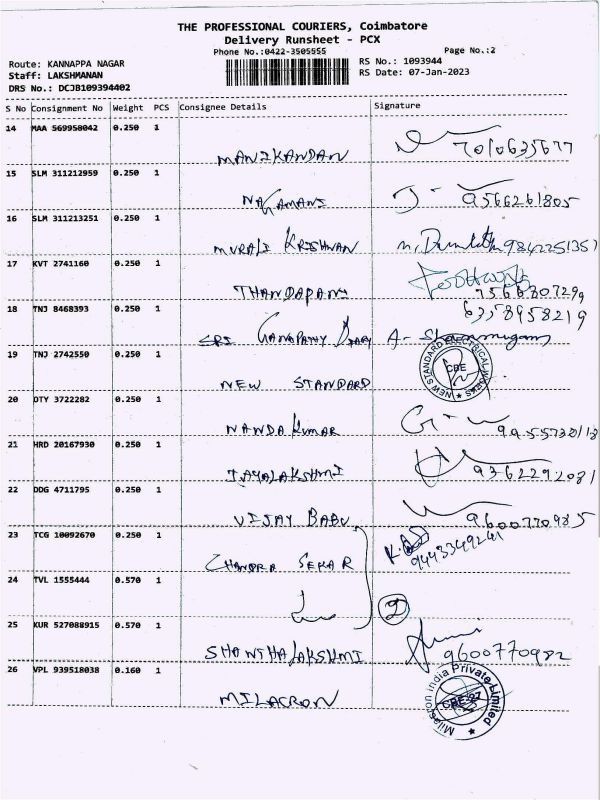 THE PROFESSIONAL COURIERS, Coimbatore
Delivery Runsheet - PCX
Phone No.:0422-3505555
Page No.:2
Route: KANNAPPA NAGAR
RS No.: 1093944
Staff: LAKSHMANAN
RS Date: 07-Jan-2023
DRS No.: DCJB109394402
S No Consignment No Weight PCS Consignee Details Signature
14 MAA 569958042 0.250 1
MANIKANDAN 7010635677
15 SLM 311212959 0.250 1
NAGAMANI 9566261805
16 SLM 311213251 0.250 1
MURALI KRISHNAN
17 KVT 2741160 0.250 1
THANDAPANI 7566807299
18 TNJ 8468393 0.250 1 6358958219
SRI GANAPATHY
19 TNJ 2742550 0.250 1
NEW STANDARD
NEW STANDARD ELECTRICAL WORKS CBE
20 DTY 3722282 0.250 1
NANDA KUMAR
21 HRD 20167930 0.250 1
JAYALAKSHMI 9362292081
22 DDG 4711795 0.250 1
VIJAY BABU 9600770985
23 TCG 10092670 0.250 1
CHANDRA SEKAR 9443349241
24 TVL 1555444 0.570 1
2
25 KUR 527088915 0.570 1
SHANTHALAKSHMI 9600770982
26 VPL 939518038 0.160 1
MILACRON
Milacron India Private Limited CBE-27